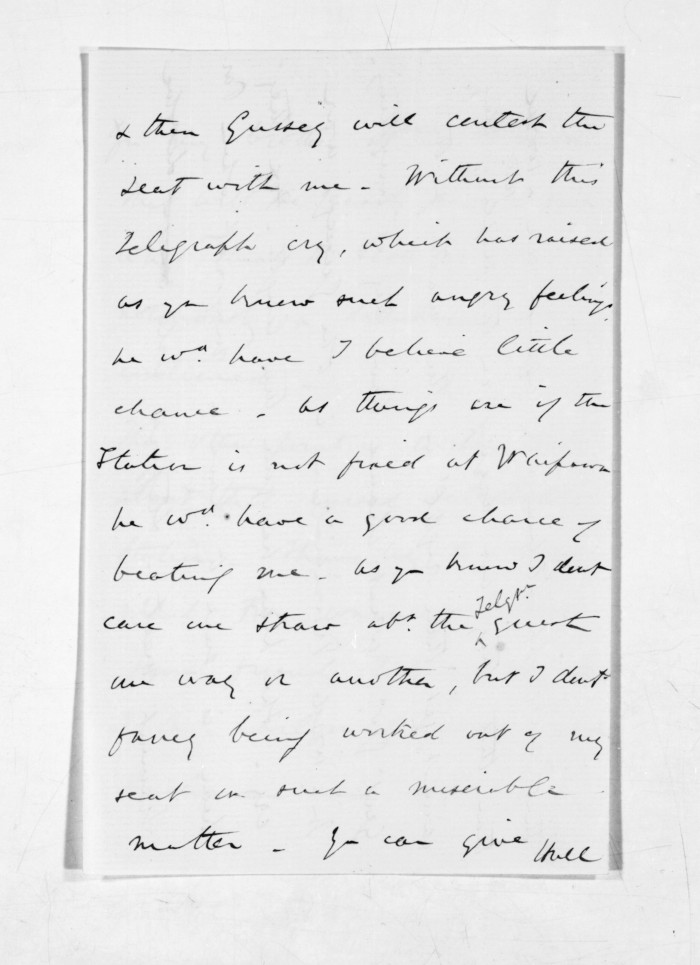 & then Gussey will contest the
seat with me - Without this
Telegraph cry, which has raised
as you know such angry feelings,
he wd. have I believe little
chance - As things are if the
Station is not fixed at Waipawa
he wd. have a good chance of
beating me - As you know I dont
care one straw abt. the Telgh. Quest.
one way or another, but I dont
fancy being worked out of my
seat on such a miserable
matter - You can give Hall